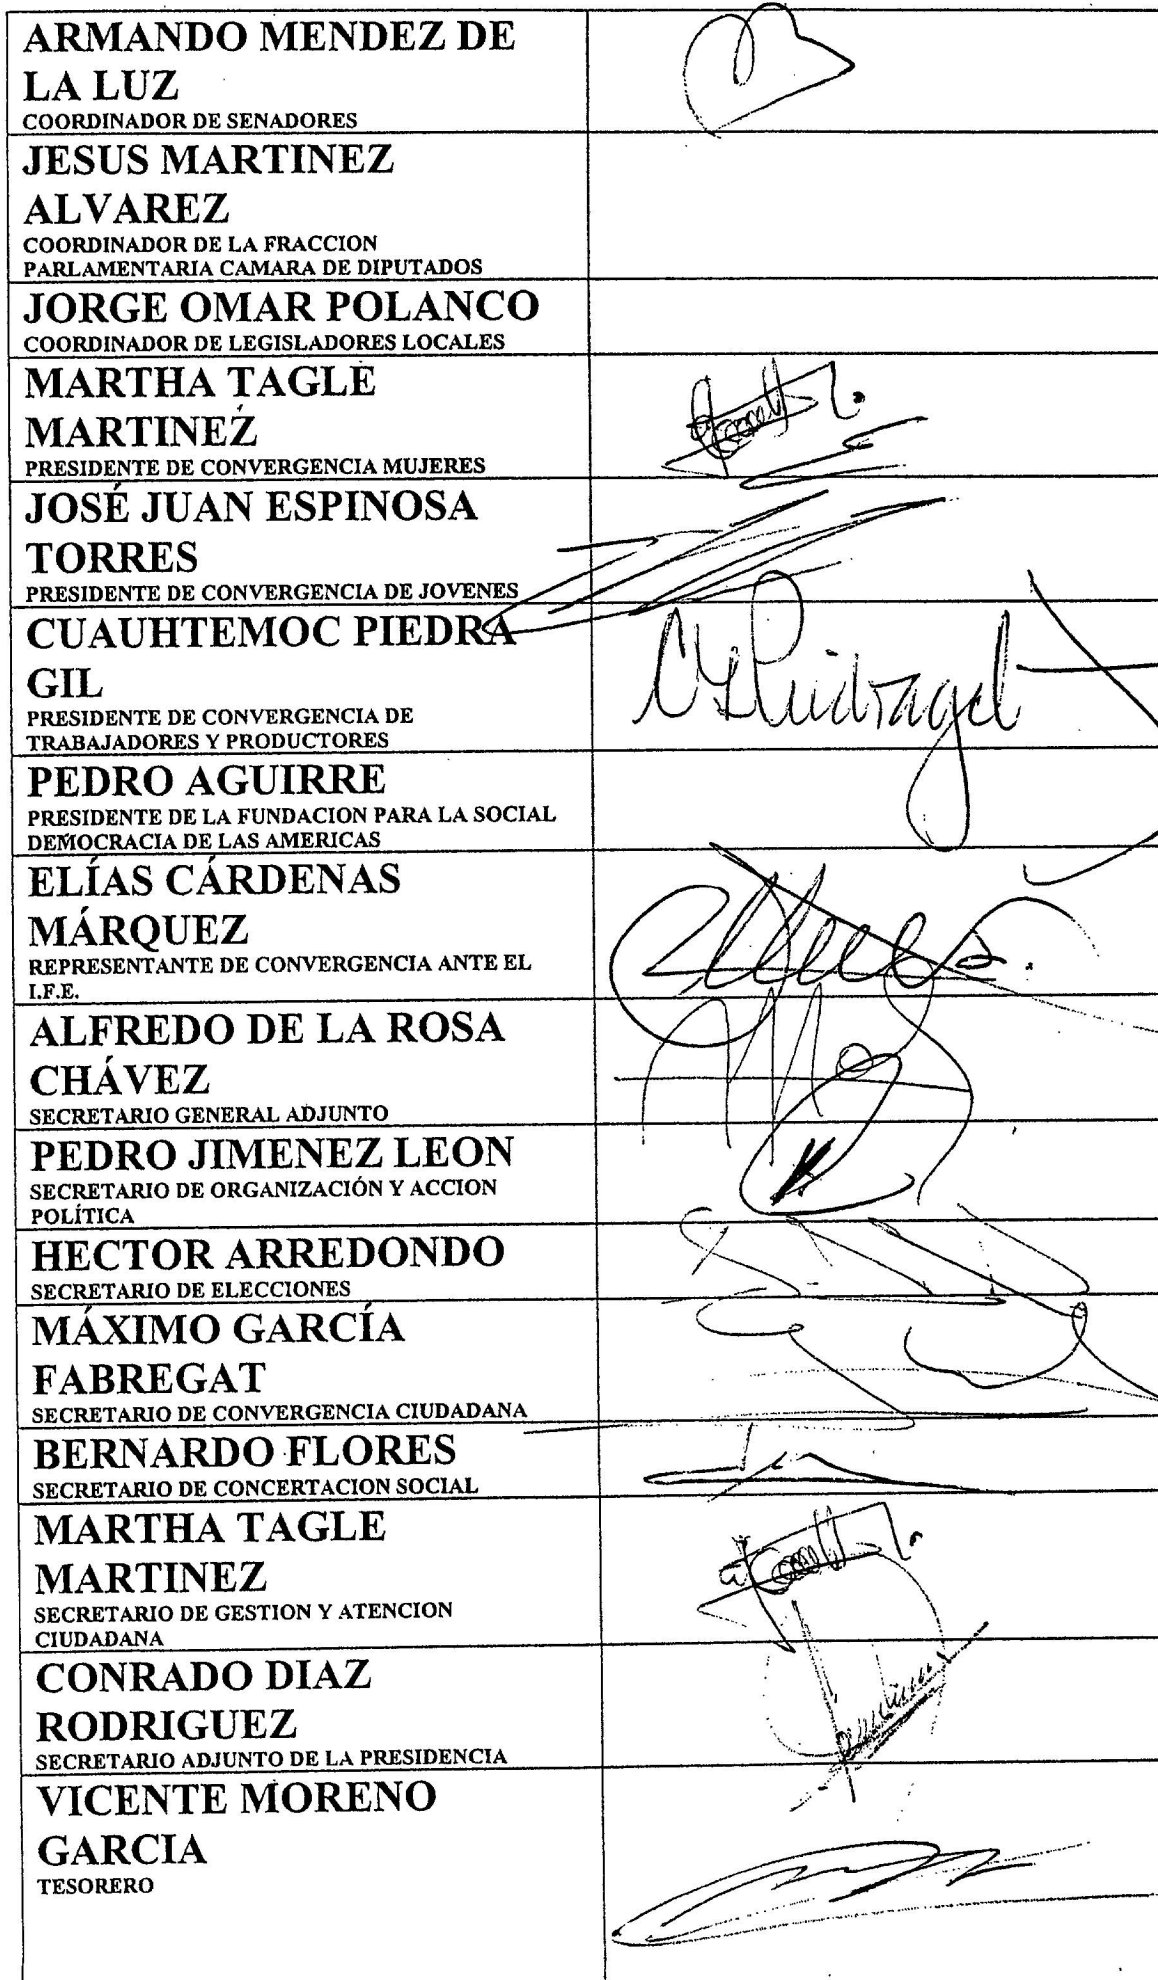 ARMANDO MENDEZ DE
LA LUZ
COORDINADOR DE SENADORES
JESUS MARTINEZ
ALVAREZ
COORDINADOR DE LA FRACCION
PARLAMENTARIA CAMARA DE DIPUTADOS
JORGE OMAR POLANCO
COORDINADOR DE LEGISLADORES LOCALES
MARTHA TAGLE
MARTINEZ
PRESIDENTE DE CONVERGENCIA MUJERES
JOSÉ JUAN ESPINOSA
TORRES
PRESIDENTE DE CONVERGENCIA DE JOVENES
CUAUHTEMOC PIEDRA
GIL
PRESIDENTE DE CONVERGENCIA DE
TRABAJADORES Y PRODUCTORES
PEDRO AGUIRRE
PRESIDENTE DE LA FUNDACION PARA LA SOCIAL
DEMOCRACIA DE LAS AMERICAS
ELÍAS CÁRDENAS
MÁRQUEZ
REPRESENTANTE DE CONVERGENCIA ANTE EL
I.F.E.
ALFREDO DE LA ROSA
CHÁVEZ
SECRETARIO GENERAL ADJUNTO
PEDRO JIMENEZ LEON
SECRETARIO DE ORGANIZACIÓN Y ACCION
POLÍTICA
HECTOR ARREDONDO
SECRETARIO DE ELECCIONES
MÁXIMO GARCÍA
FABREGAT
SECRETARIO DE CONVERGENCIA CIUDADANA
BERNARDO FLORES
SECRETARIO DE CONCERTACION SOCIAL
MARTHA TAGLE
MARTINEZ
SECRETARIO DE GESTION Y ATENCION
CIUDADANA
CONRADO DIAZ
RODRIGUEZ
SECRETARIO ADJUNTO DE LA PRESIDENCIA
VICENTE MORENO
GARCIA
TESORERO